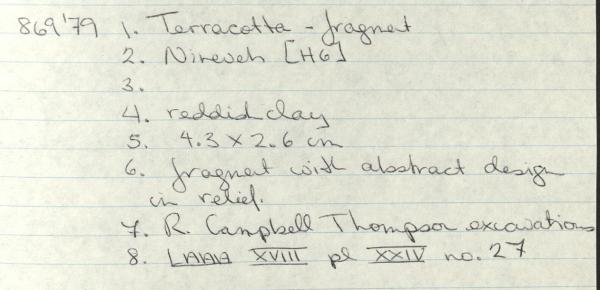 869'79 1. Terracotta - fragment
2. Nineveh [H6]
3.
4. reddish clay
5. 4.3 x 2.6 cm
6. fragment with abstract design
in relief.
7. R. Campbell Thompson excavations
8. LAAA XVIII pl XXIV no. 27